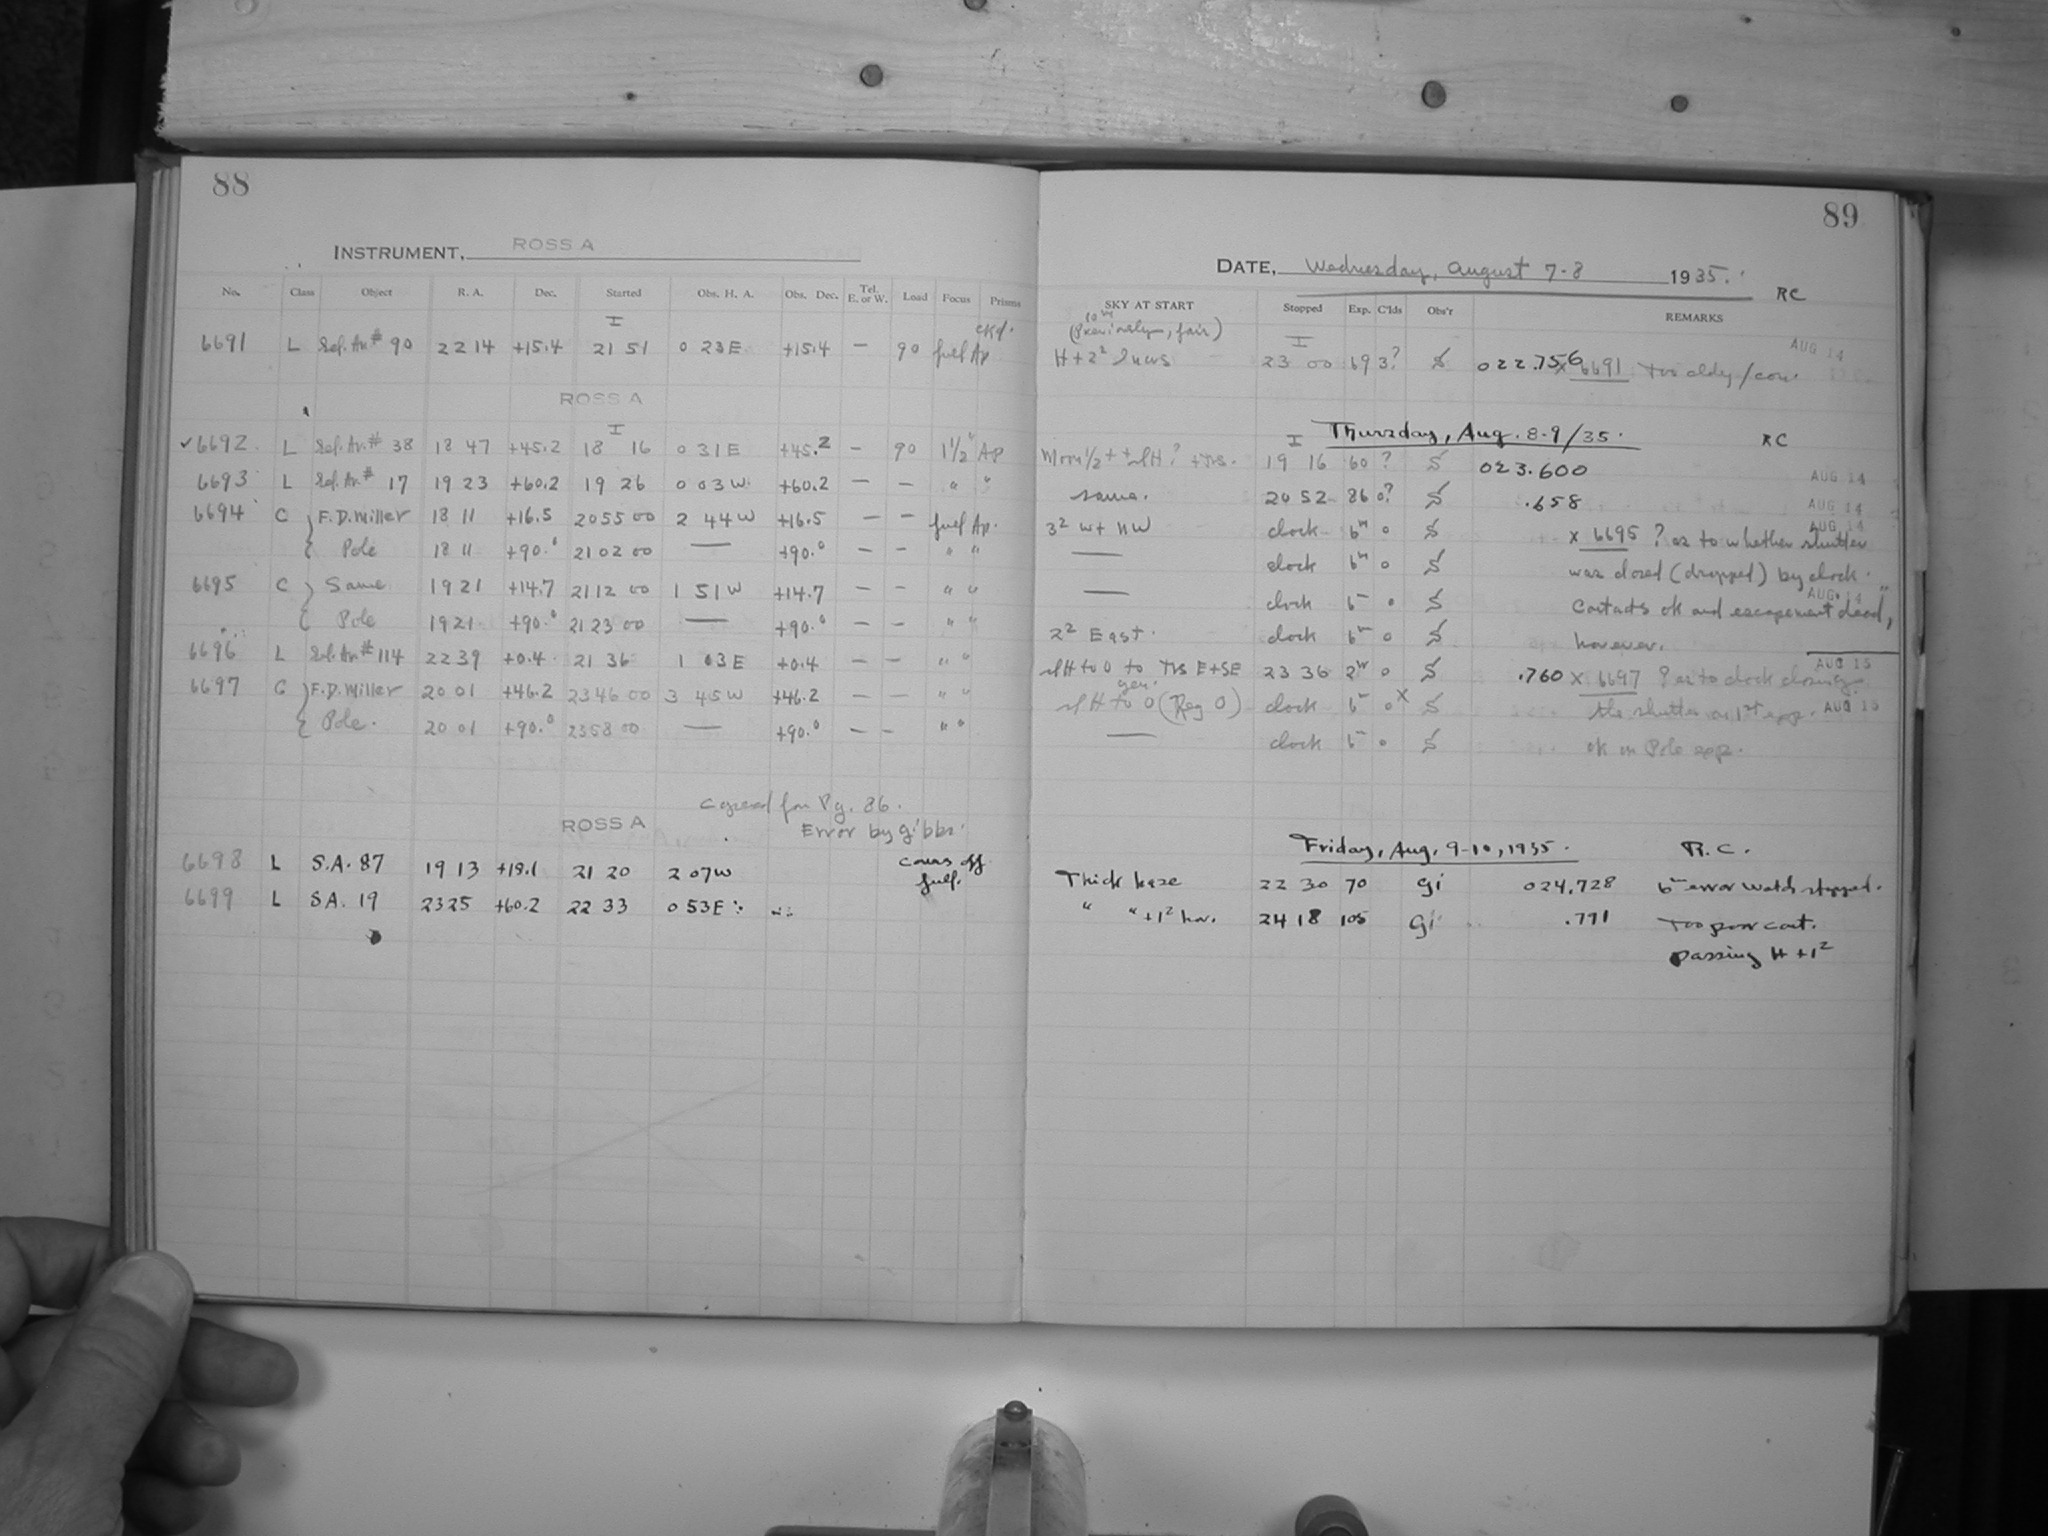 88
INSTRUMENT, ROSS A
No. Class Object R. A. Dec. Started Obs. H. A. Obs. Dec. Tel. E. or W. Load Focus Prisms
I ckd.
6691 L Sel. Ar. # 90 22 14 +15.4 21 51 0 23 E +15.4 — 90 full Ap
ROSS A
I
✓6692. L Sel. Ar. # 38 18 47 +45.2 18 16 0 31 E +45.2 — 90 1 1/2 " Ap
6693 L Sel. Ar. # 17 19 23 +60.2 19 26 0 03 W. +60.2 — — " "
6694 C F. D. Miller 18 11 +16.5 20 55 00 2 44 W +16.5 — — full Ap.
Pole 18 11 +90.° 21 02 00 — +90.° — — " "
6695 C Same 19 21 +14.7 21 12 00 1 51 W +14.7 — — " "
Pole 19 21 +90.° 21 23 00 — +90.° — — " "
6696 L Sel. Ar. # 114 22 39 +0.4 21 36 1 03 E +0.4 — — " "
6697 C F. D. Miller 20 01 +46.2 23 46 00 3 45 W +46.2 — — " "
Pole. 20 01 +90.° 23 58 00 — +90.° — — " "
Pg. 86.
ROSS A Error by Gibbs.
6698 L S.A. 87 19 13 +19.1 21 20 2 07 W off
full.
6699 L S.A. 19 23 25 +60.2 22 33 0 53 E
89
DATE, Wednesday, August 7-8 1935.
RC
SKY AT START Stopped Exp. C'lds Obs'r REMARKS
10 m
(Previously, fair) I AUG 14
H + 2² 23 00 69 3? S 022.756 x 6691 Too cldy / con.
Thursday, Aug. 8-9/35. RC
I
Moon 1/2 + + slH? + 19 16 60 ? S 023.600 AUG 14
same. 20 52 86 0? S .658 AUG 14
3² W + NW clock 6m 0 S x 6695 ? as to whether shutter AUG 14
— clock 6m 0 S was closed (dropped) by clock.
— clock 6m 0 S Contacts ok and escapement dead, AUG 14
2² East. clock 6m 0 S however.
slH to 0 to E + SE 23 36 2 H 0 S .760 x 6697 ? as to clock closing AUG 15
slH to 0 (Reg 0) clock 6m 0 x S the shutter on 1st exp. AUG 15
— clock 6m 0 S ok on Pole exp.
Friday, Aug. 9-10, 1935. R.C.
Thick haze 22 30 70 Gi 024.728 6m error watch stopped.
" " +1² hor. 24 18 105 Gi .791 Too poor cont.
passing H + 1²